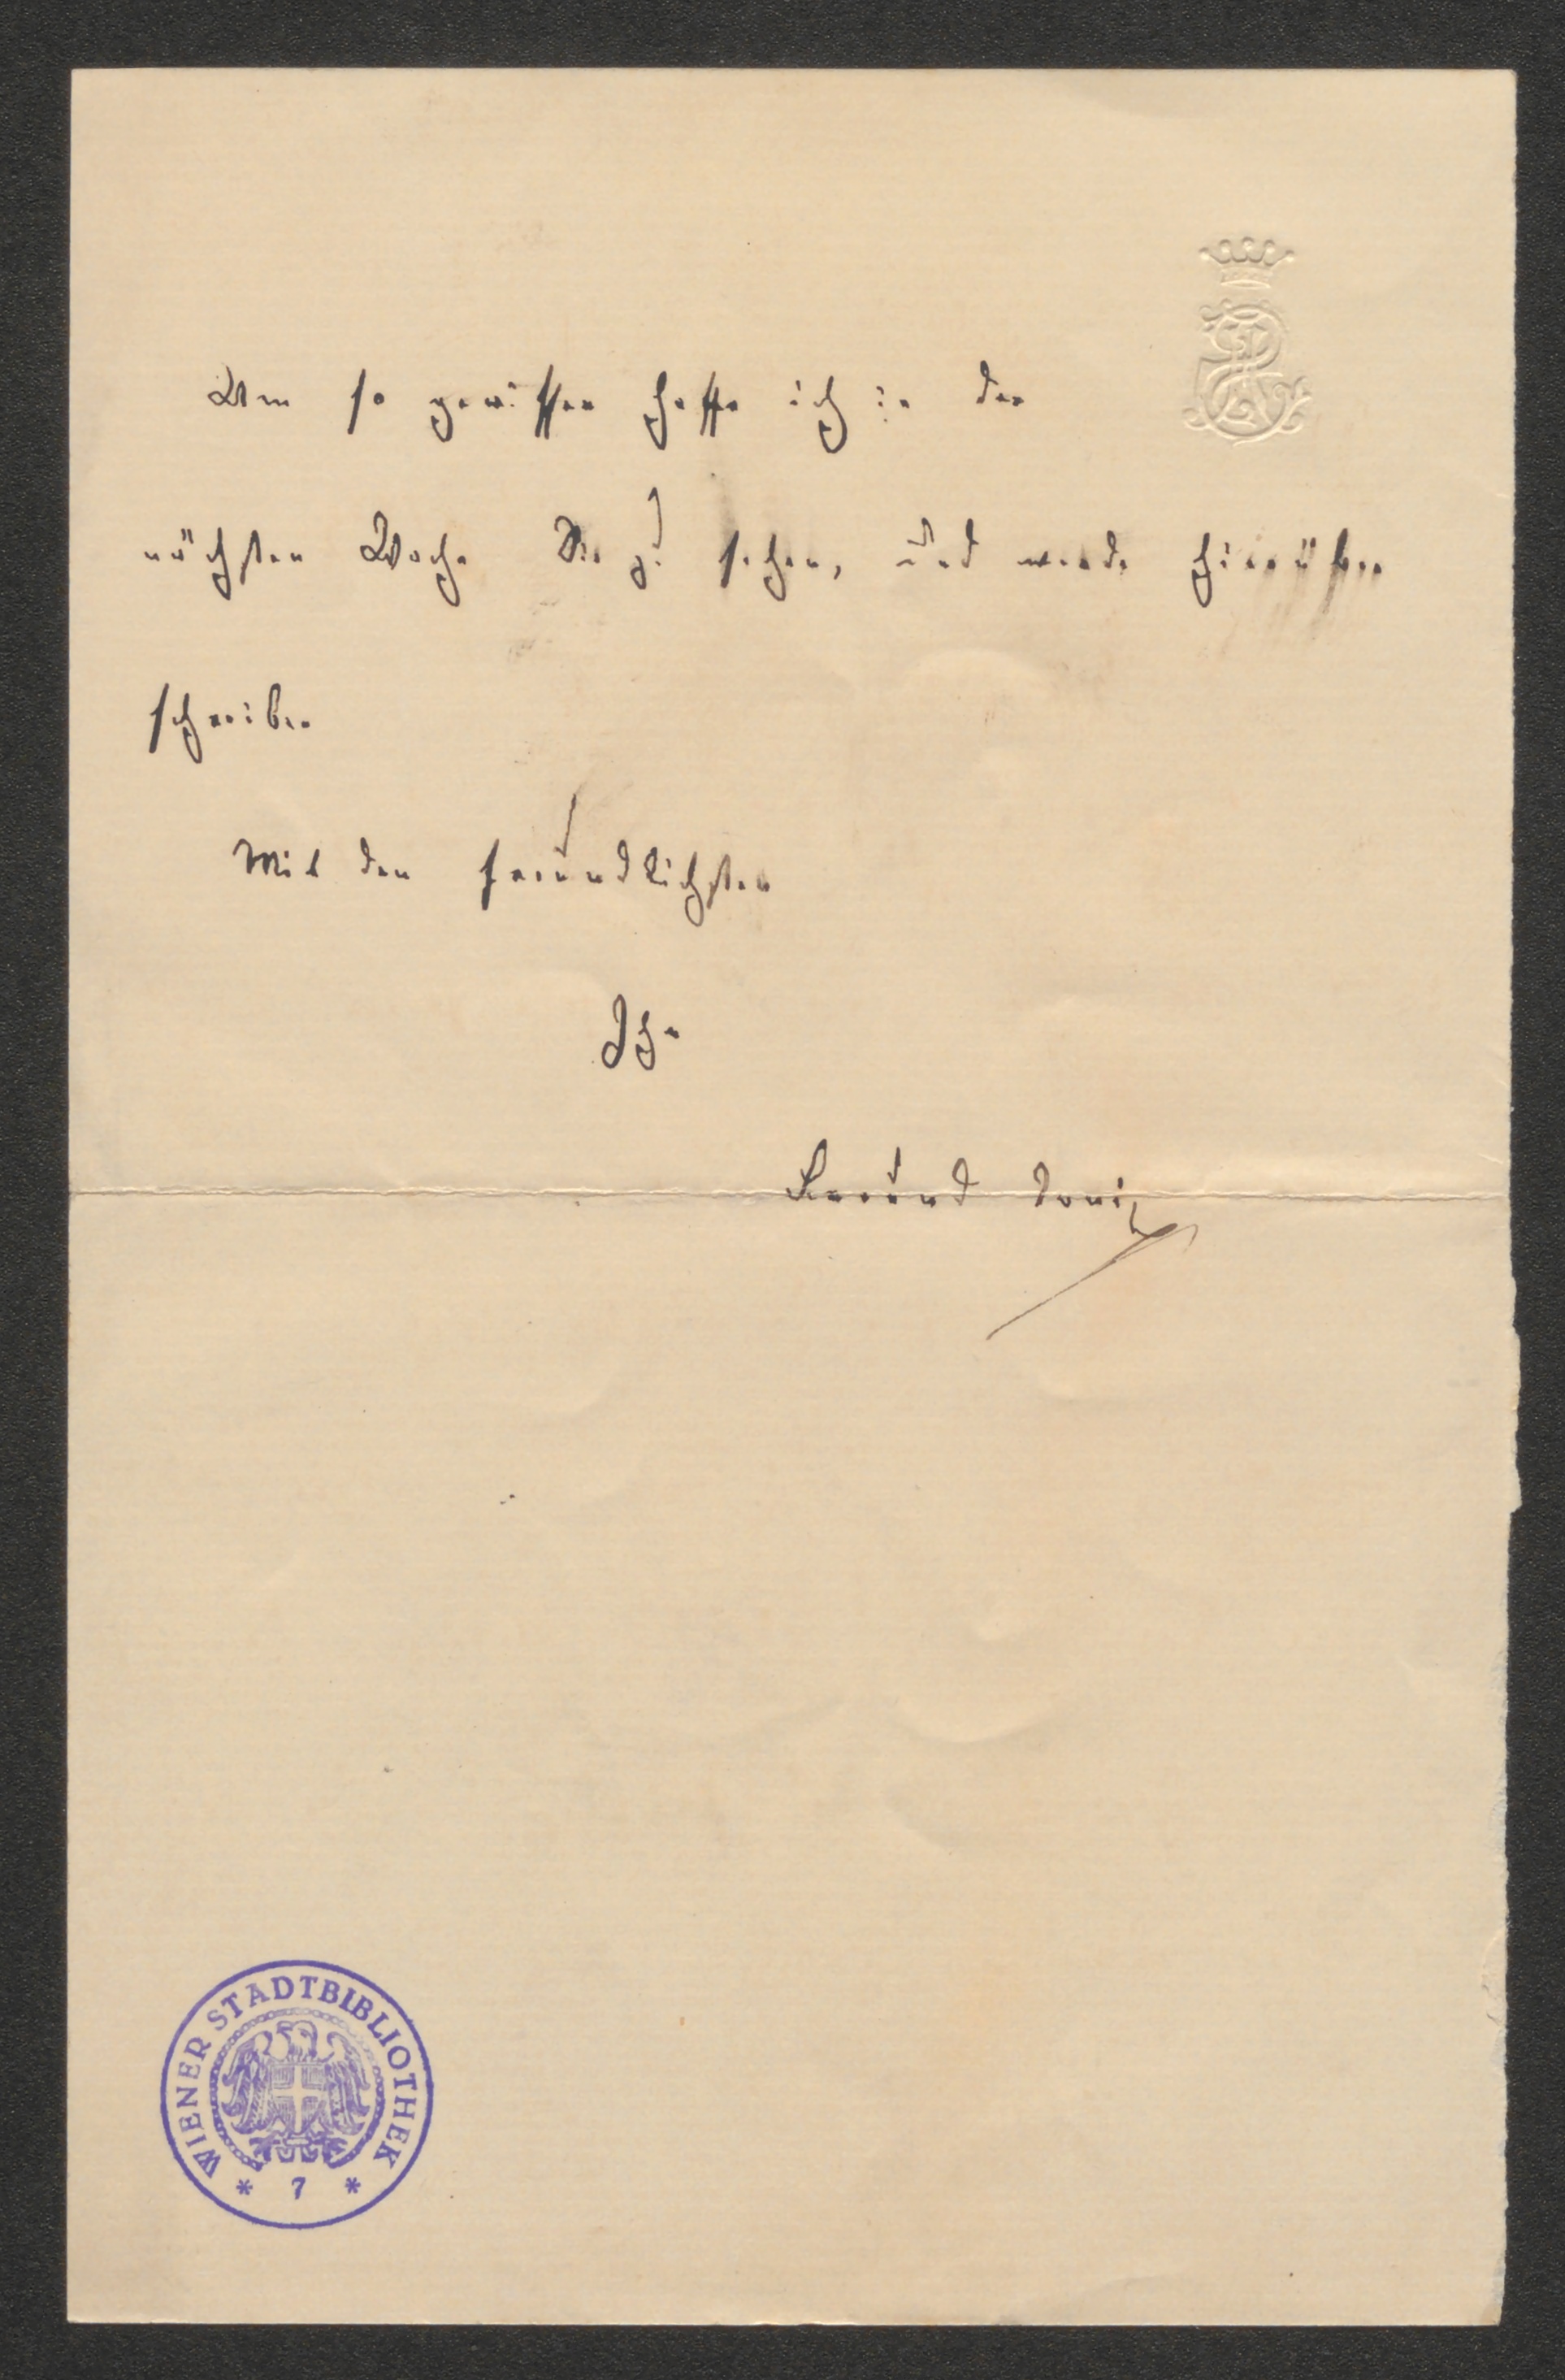 Um so gewisser hoffe ich in der
nächsten Woche Sie zu sehen, und werde hierüber
schreiben
Mit den freundlichsten
Ihr
WIENER STADTBIBLIOTHEK
* 7 *